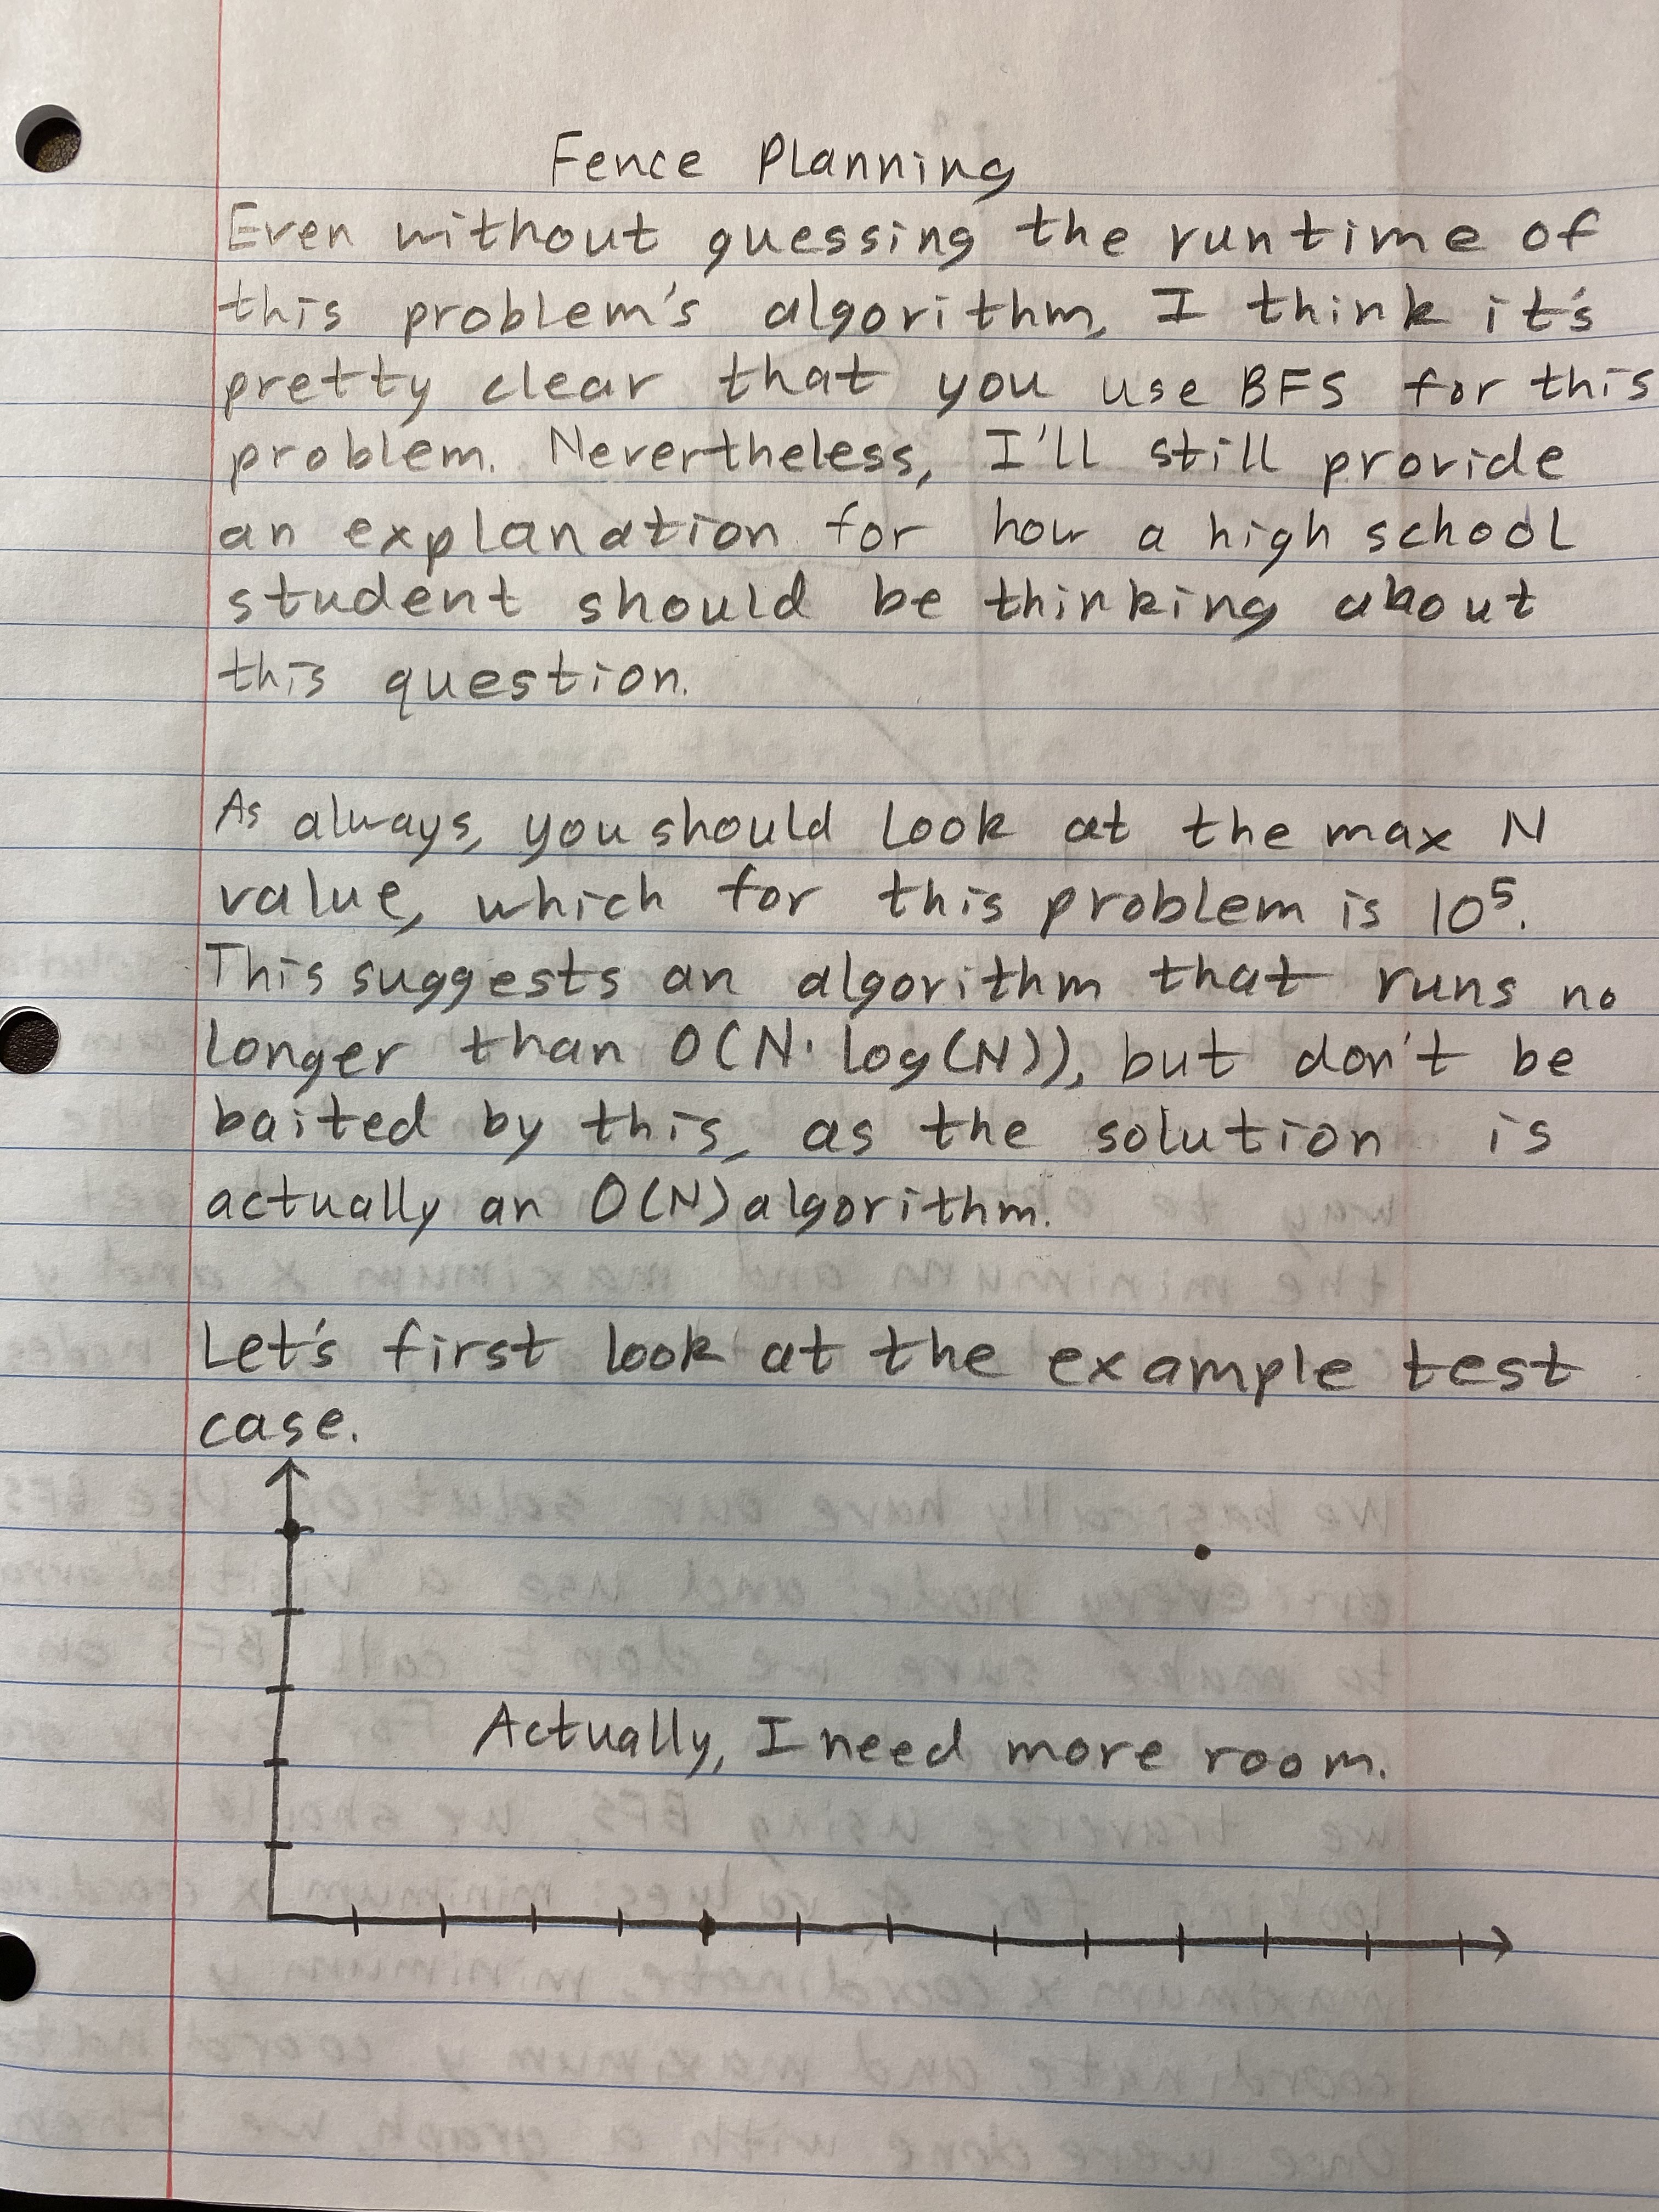 Fence Planning
Even without guessing the runtime of
this problem's algorithm, I think it's
pretty clear that you use BFS for this
problem. Nevertheless, I'll still provide
an explanation for how a high school
student should be thinking about
this question.
As always, you should look at the max N
value, which for this problem is 10⁵.
This suggests an algorithm that runs no
longer than O(N· log(N)), but don't be
baited by this, as the solution is
actually an O(N) algorithm.
Let's first look at the example test
case.
Actually, I need more room.